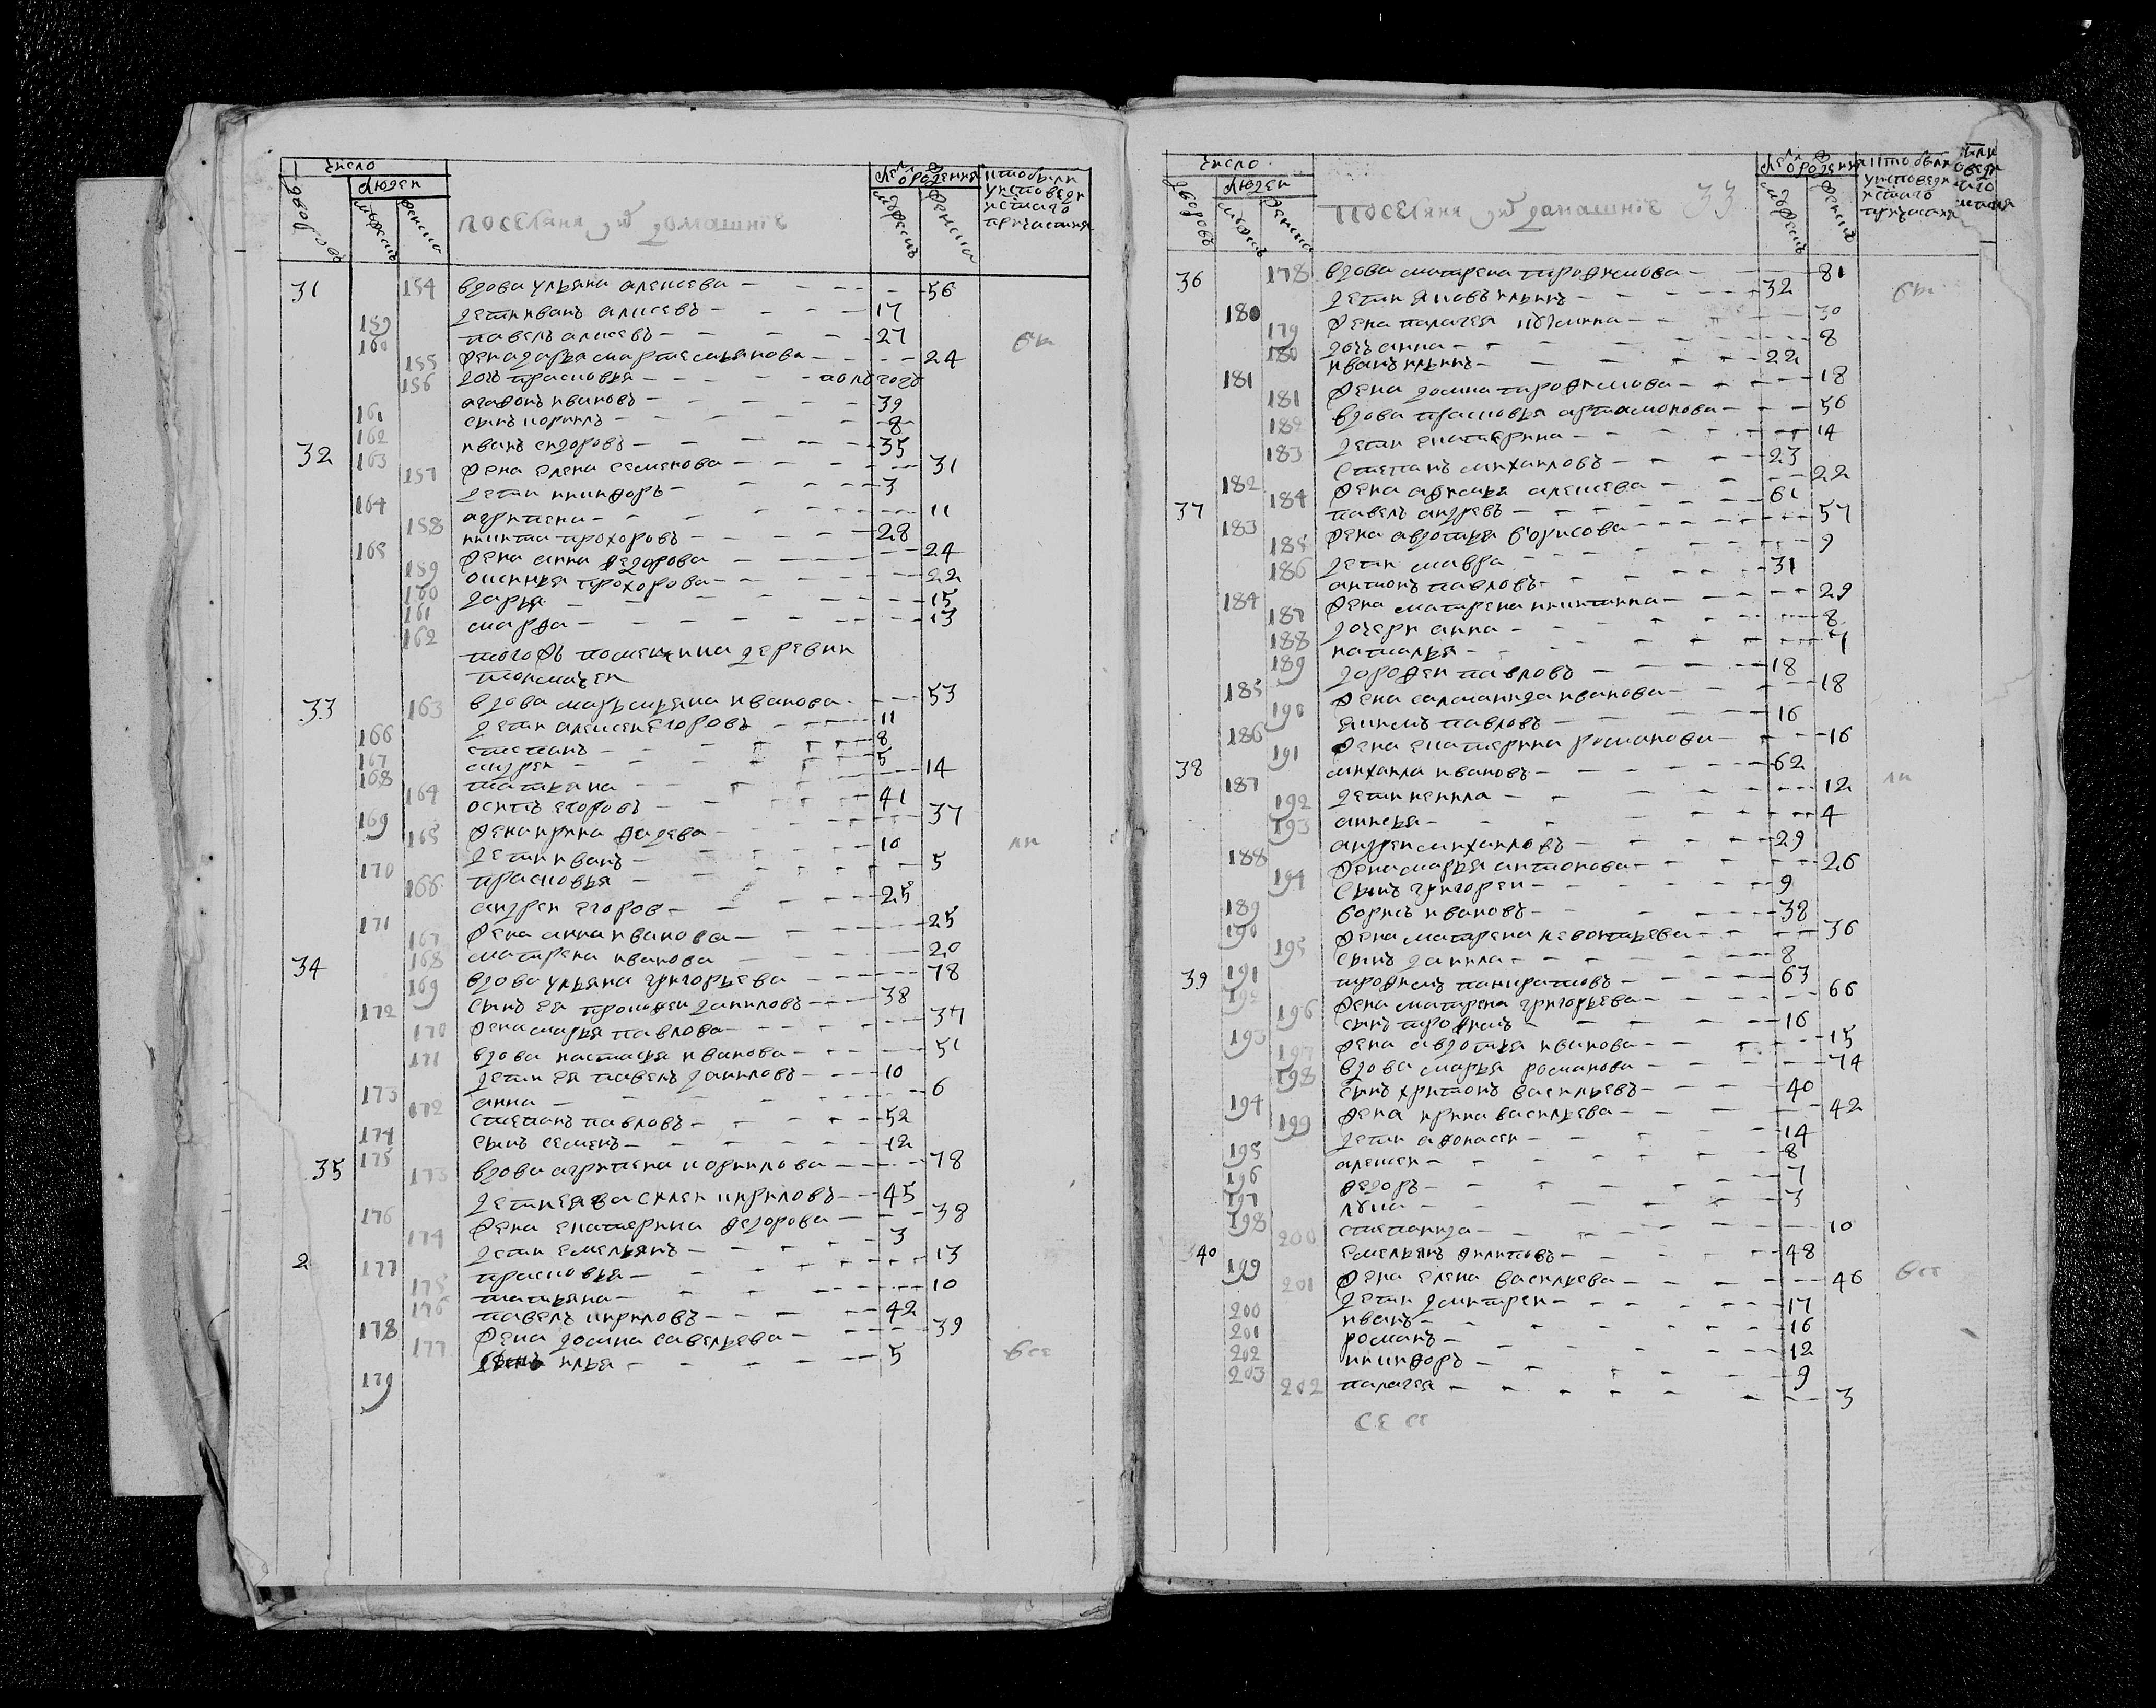 число
людей
дворовъ
мужескъ
женска
поселяня и домашніе
лета от рождения
мужескъ
женска
кто были у исповеди и святаго причастия
31 154 вдова ульяна алексева 56
159 дети иванъ алисевъ 17
160 павелъ алисевъ 27
155 жена дарья мартемьянова 24
156 дочь прасковья полугоду
161 агафонъ ивановъ 39
162 сынъ кориилъ 8
32 163 иванъ сидоровъ 35
157 жена елена семенова 31
164 дети никифоръ 3
158 агрипена 11
165 никита прохоровъ 28
159 жена анна федорова 24
160 оксинья прохорова 22
161 дарья 15
162 марфа 13
тогожъ помещика деревни
токмачеи
33 163 вдова маремьяна иванова 53
166 дети алексеи егоровъ 11
167 степанъ 8
168 андреи 5
164 татьяна 14
169 осипъ егоровъ 41
165 жена ирина фадева 37
170 дети иванъ 10
166 прасковья 5
171 андреи егоров 25
167 жена анна иванова 25
168 матрена иванова 20
34 169 вдова ульяна григорьева 78
172 сынъ ея прокофеи даниловъ 38
170 жена марья павлова 37
171 вдова настасья иванова 51
173 дети ея павелъ даниловъ 10
172 анна 6
174 степанъ павловъ 52
175 сынъ семенъ 12
35 173 вдова агрипена корнилова 78
176 дети ея василеи кириловъ 45
174 жена екатерина федорова 38
2 177 дети емельянъ 3
175 прасковья 13
176 татьяна 10
178 павелъ кириловъ 42
177 жена домна савельева 39
179 сынъ илья 5
число
людей
дворовъ
мужескъ
женска
поселяня и домашніе 33
лета от рождения
мужескъ
женскъ
кто были у исповеди и святаго причастия
36 178 вдова матрена трофимова 81
180 дети яковъ ильинъ 32
179 жена палагея кузмина 30
180 дочь анна 8
181 иванъ ильинъ 22
181 жена домна трофимова 18
182 вдова прасковья артамонова 56
183 дети екатерина 14
182 степанъ михаиловъ 23
184 жена афимья алексева 22
37 183 павелъ андревъ 61
185 жена авдотья борисова 57
186 дети мавра 9
184 антонъ павловъ 31
187 жена матрена никитина 29
188 дочери анна 8
189 наталья 7
185 дорофеи павловъ 18
190 жена саломанида иванова 18
186 якимъ павловъ 16
191 жена екатерина романова 16
38 187 михаила ивановъ 62
192 дети ненила 12
193 анисья 4
188 андреи михаиловъ 29
194 жена марья антонова 26
189 сынъ григореи 9
190 борисъ ивановъ 38
195 жена матрена левонтьева 36
191 сынъ данила 8
39 192 трофимъ панкратовъ 63
196 жена матрена григорьева 66
193 сынъ трофимъ 16
197 жена авдотья иванова 15
198 вдова марья романова 74
194 сынъ харитонъ васильевъ 40
199 жена ирина васильева 42
195 дети афонасеи 14
196 алексеи 8
197 федоръ 7
198 лука 3
200 степанида 10
40 199 емельянъ филиповъ 48
201 жена елена васильева 46
200 дети дмитреи 17
201 иванъ 16
202 романъ 12
203 никифоръ 9
202 палагея 3